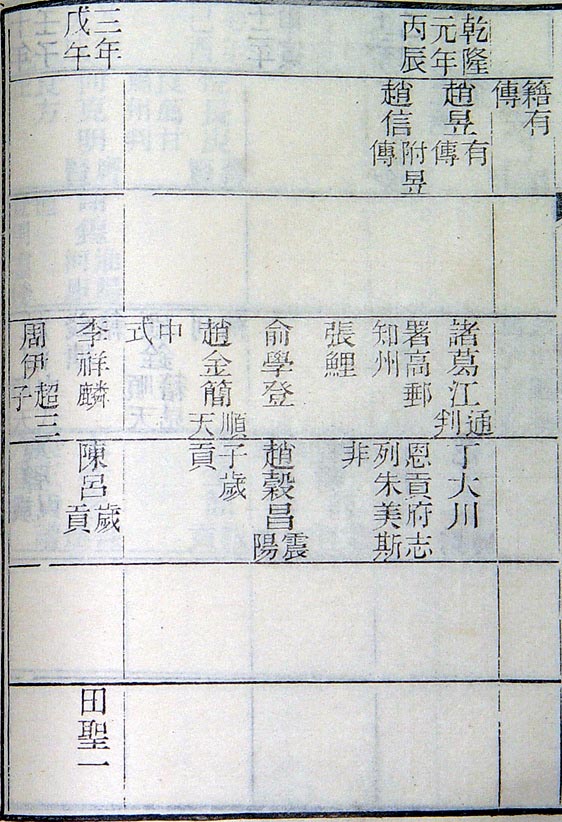 乾隆
元年
丙辰
三年
戊午
籍有
傳
趙昱有傳
趙信附昱傳
諸葛江通判
署高郵
知州
張鯉
俞學登
趙金簡順天
中
式
李祥麟
周伊超三子
丁大川
恩貢府志
列朱美斯
非
趙穀昌震陽
子歲
貢
陳呂歲貢
田聖一